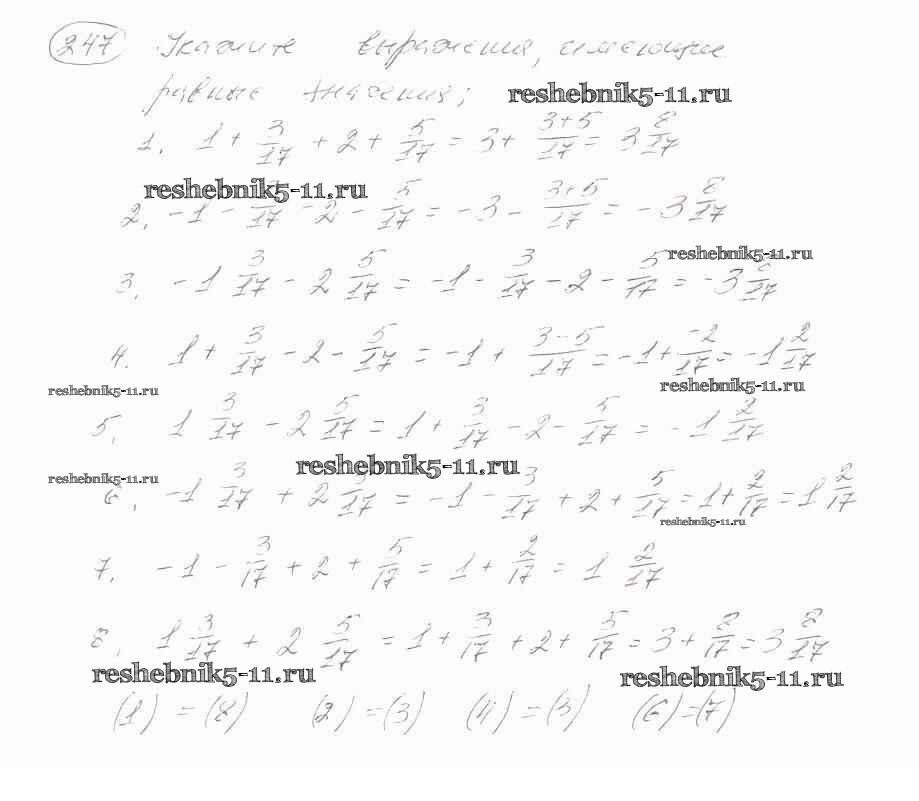 247 Укажите выражения, имеющие
равные значения;
reshebnik5-11.ru
1. 1 + 3/17 + 2 + 5/17 = 3 + (3+5)/17 = 3 8/17
reshebnik5-11.ru
2. -1 - 3/17 - 2 - 5/17 = -3 - (3+5)/17 = -3 8/17
reshebnik5-11.ru
3. -1 3/17 - 2 5/17 = -1 - 3/17 - 2 - 5/17 = -3 8/17
4. 1 + 3/17 - 2 - 5/17 = -1 + (3-5)/17 = -1 + -2/17 = -1 2/17
reshebnik5-11.ru
reshebnik5-11.ru
5. 1 3/17 - 2 5/17 = 1 + 3/17 - 2 - 5/17 = -1 2/17
reshebnik5-11.ru
reshebnik5-11.ru
6. -1 3/17 + 2 /17 = -1 - 3/17 + 2 + 5/17 = 1 + 2/17 = 1 2/17
reshebnik5-11.ru
7. -1 - 3/17 + 2 + 5/17 = 1 + 2/17 = 1 2/17
8. 1 3/17 + 2 5/17 = 1 + 3/17 + 2 + 5/17 = 3 + 8/17 = 3 8/17
reshebnik5-11.ru
reshebnik5-11.ru
(1) = (8) (2) = (3) (4) = (5) (6) = (7)